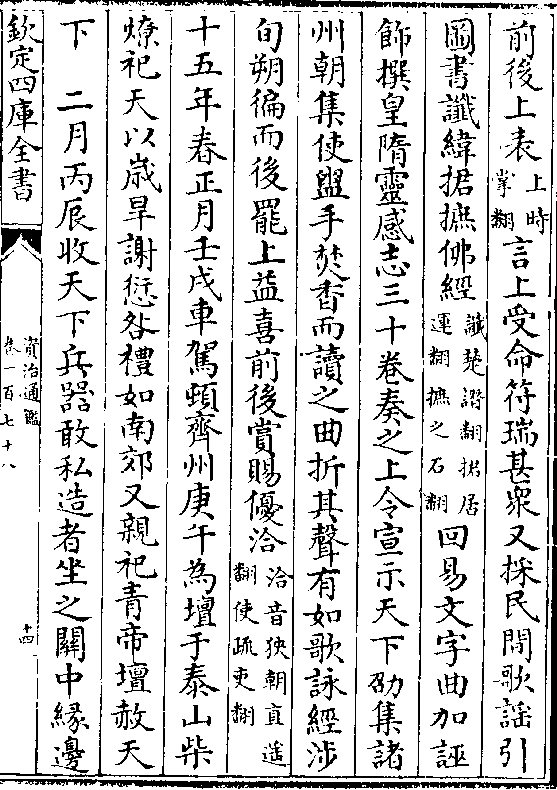 前後上表上時掌翻言上受命符瑞甚衆又採民間歌謡引
圖書䜟緯捃摭佛經䜟楚譛翻捃居運翻摭之石翻回易文字曲加誣
飾撰皇隋靈感志三十卷奏之上令宣示天下劭集諸
州朝集使盥手焚香而讀之曲折其聲有如歌詠經涉
旬朔徧而後罷上益喜前後賞賜優洽洽音狹朝直遥翻使疏吏翻
十五年春正月壬戌車駕頓齊州庚午為壇于泰山柴
燎祀天以歲旱謝愆咎禮如南郊又親祀青帝壇赦天
下　二月丙辰收天下兵器敢私造者坐之關中緣邊
欽定四庫全書
資治通鑑
卷一百七十八
十四